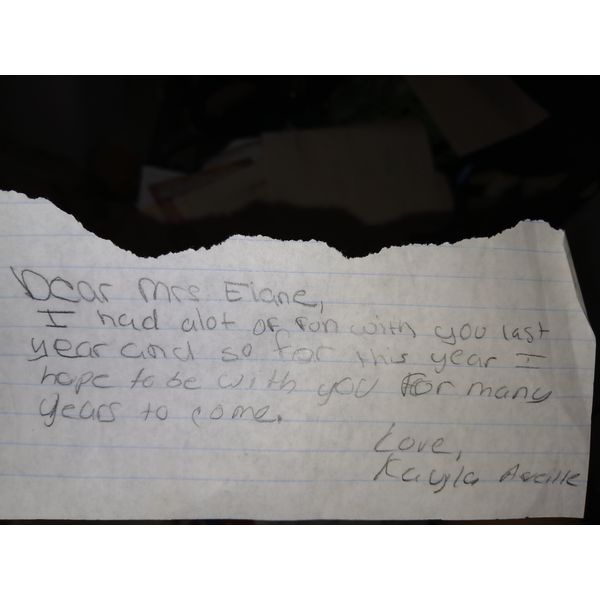 Dear Mrs Elane,
I had alot of fun with you last
year and so far this year I
hope to be with you for many
years to come.
Love,
Kayla